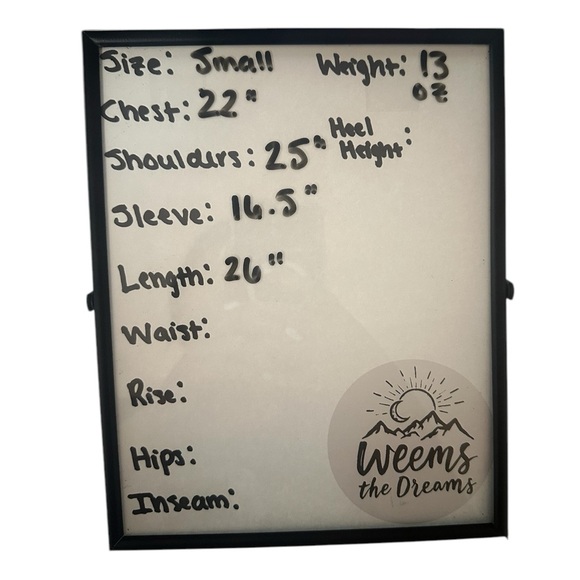 Size: Small
Weight: 13 oz
Chest: 22"
Heel Height:
Shoulders: 25"
Sleeve: 16.5"
Length: 26"
Waist:
Rise:
Hips:
Inseam:
Weems
the Dreams